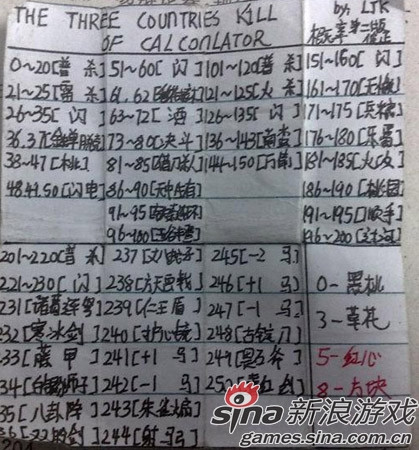 THE THREE COUNTRIES KILL
OF CALCONLATOR
by: LJK
0~20[普 杀]
21~25[雷 杀]
26~35[闪]
36.37[金蝉脱壳]
38~47[桃]
48.49.50[闪电]
51~60[闪]
61.62
63~72[酒]
73~80[决斗]
81~85[借刀杀人]
86~90[无中生有]
91~95
96~100
101~120[普杀]
121~125[火杀]
126~135[闪]
136~143[南蛮]
144~150[万箭]
151~160[闪]
161~170[无懈]
171~175[兵粮]
176~180[乐蜀]
181~185[火攻]
186~190[桃园]
191~195[顺手]
196~200[过河]
201~220[普杀]
221~230[闪]
231[诸葛连弩]
232[寒冰剑]
233[藤甲]
34[白银狮子]
35[八卦阵]
237[丈八蛇矛]
238[方天画戟]
239[仁王盾]
240[护心镜]
241[+1 马]
242[-1 马]
243[朱雀扇]
244
245[-2 马]
246[+1 马]
247[-1 马]
248[古锭刀]
249[贯石斧]
250[青釭剑]
0-黑桃
3-草花
5-红心
8-方块
sina新浪游戏
games.sina.com.cn